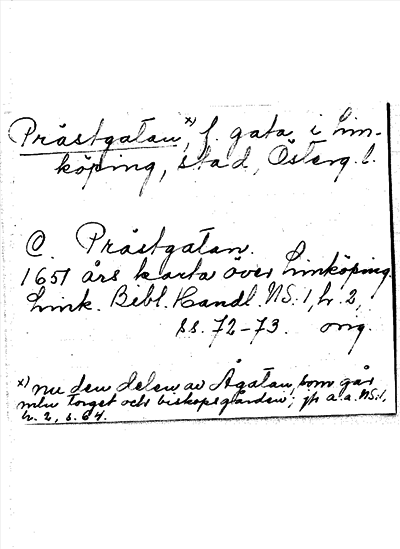 Prästgatan x), f. gata i Lin-
köping, stad, Österg. l.
C. Prästgatan.
1651 års karta över Linköping.
Link. Bibl. Handl. NS. 1, h. 2,
ss. 72-73. orig.
x) nu den delen av Ågatan, som går
mlu torget och biskopsgården; jfr a.a. NS. 1,
h. 2, s. 64.